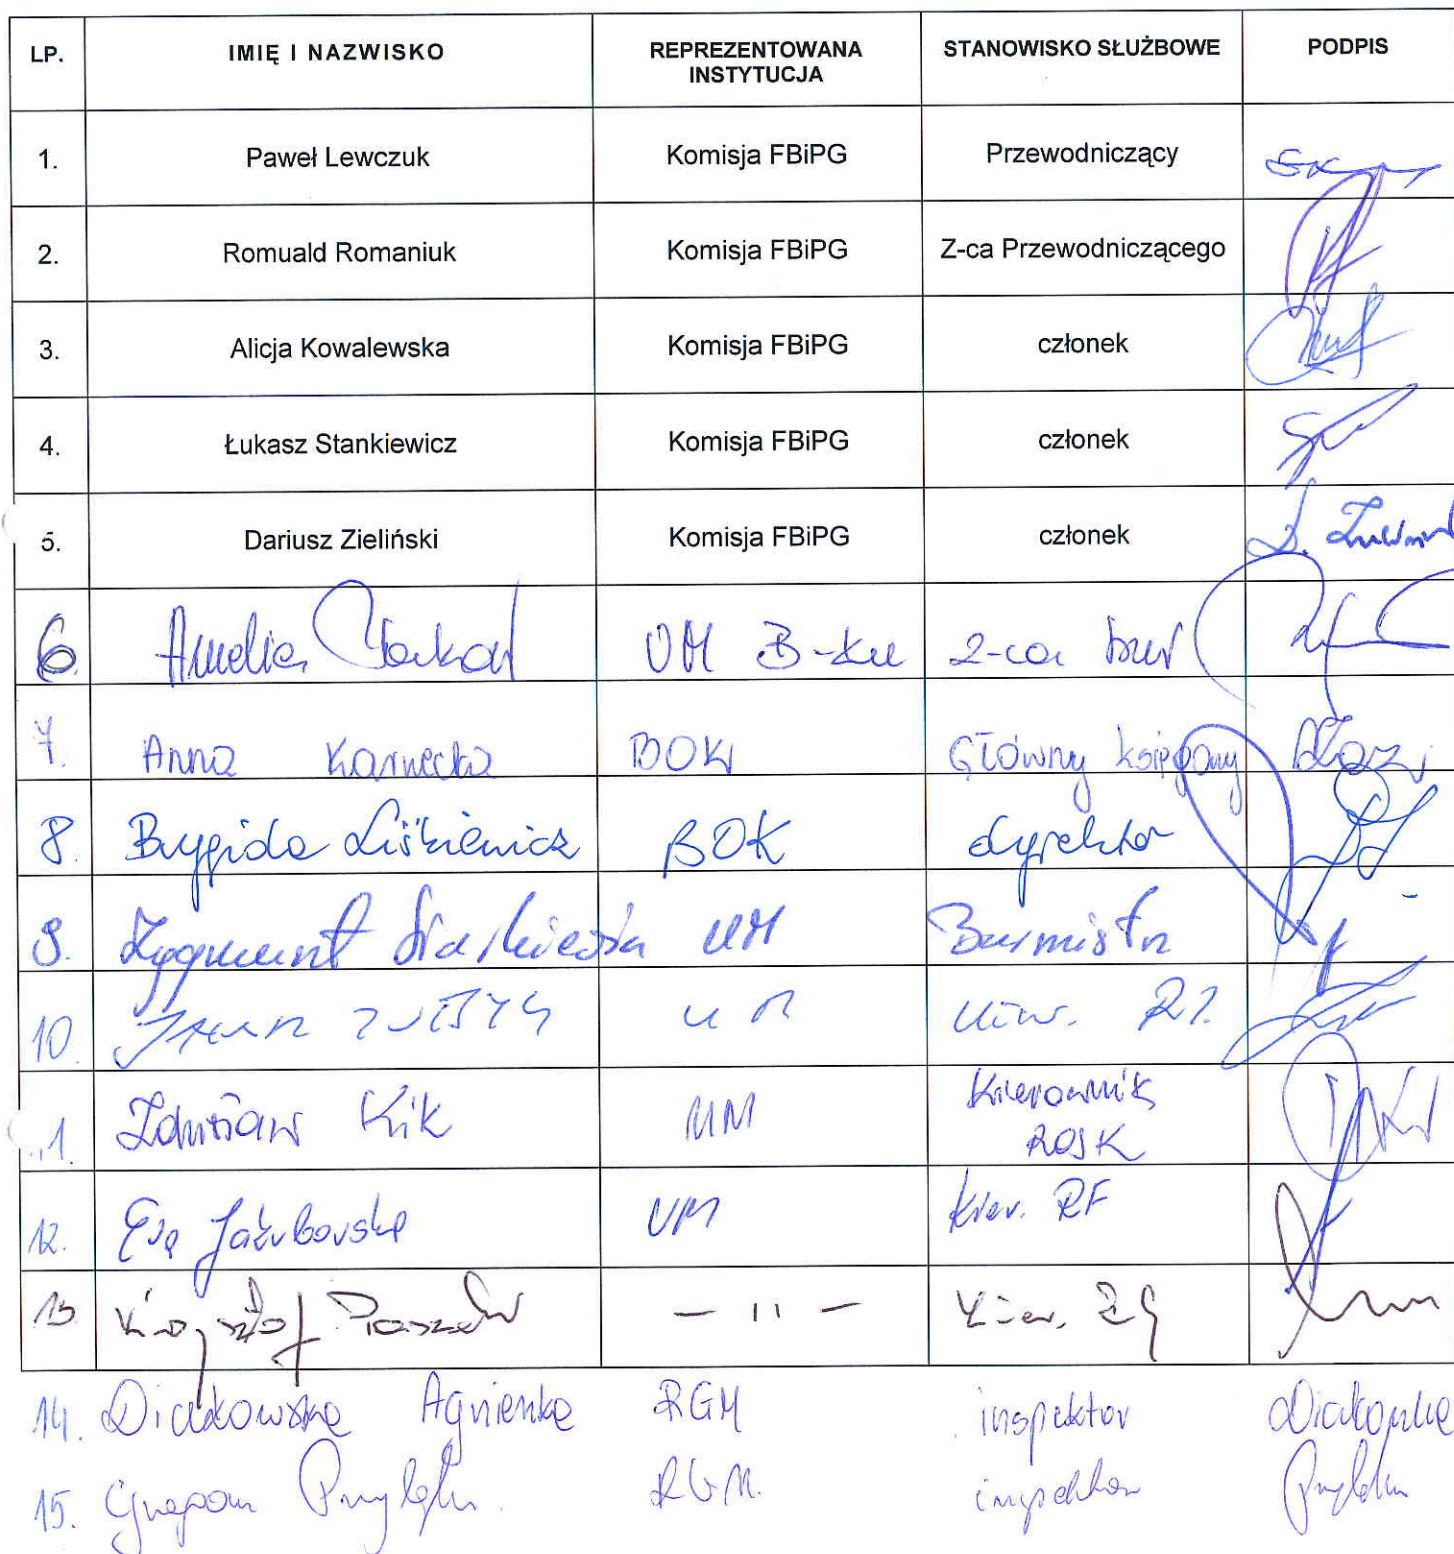 LP. IMIĘ I NAZWISKO REPREZENTOWANA INSTYTUCJA STANOWISKO SŁUŻBOWE PODPIS
1. Paweł Lewczuk Komisja FBiPG Przewodniczący
2. Romuald Romaniuk Komisja FBiPG Z-ca Przewodniczącego
3. Alicja Kowalewska Komisja FBiPG członek
4. Łukasz Stankiewicz Komisja FBiPG członek
5. Dariusz Zieliński Komisja FBiPG członek D.
6 Amelia UM B-ku Z-ca
7. Anna Karnecka BOK Główny księgowy
8. Brygida Liśkiewicz BOK dyrektor
9. Zygmunt UM Burmistrz
10. UM
11. Zdzisław Kik UM Kierownik ROSK
12. Ewa Jakubowska UM Kier. RF
13 Krzysztof — 11 — Kier.
14. Diakowska Agnieszka RGM inspektor Diakowska
15. Grzegorz RGM. inspektor